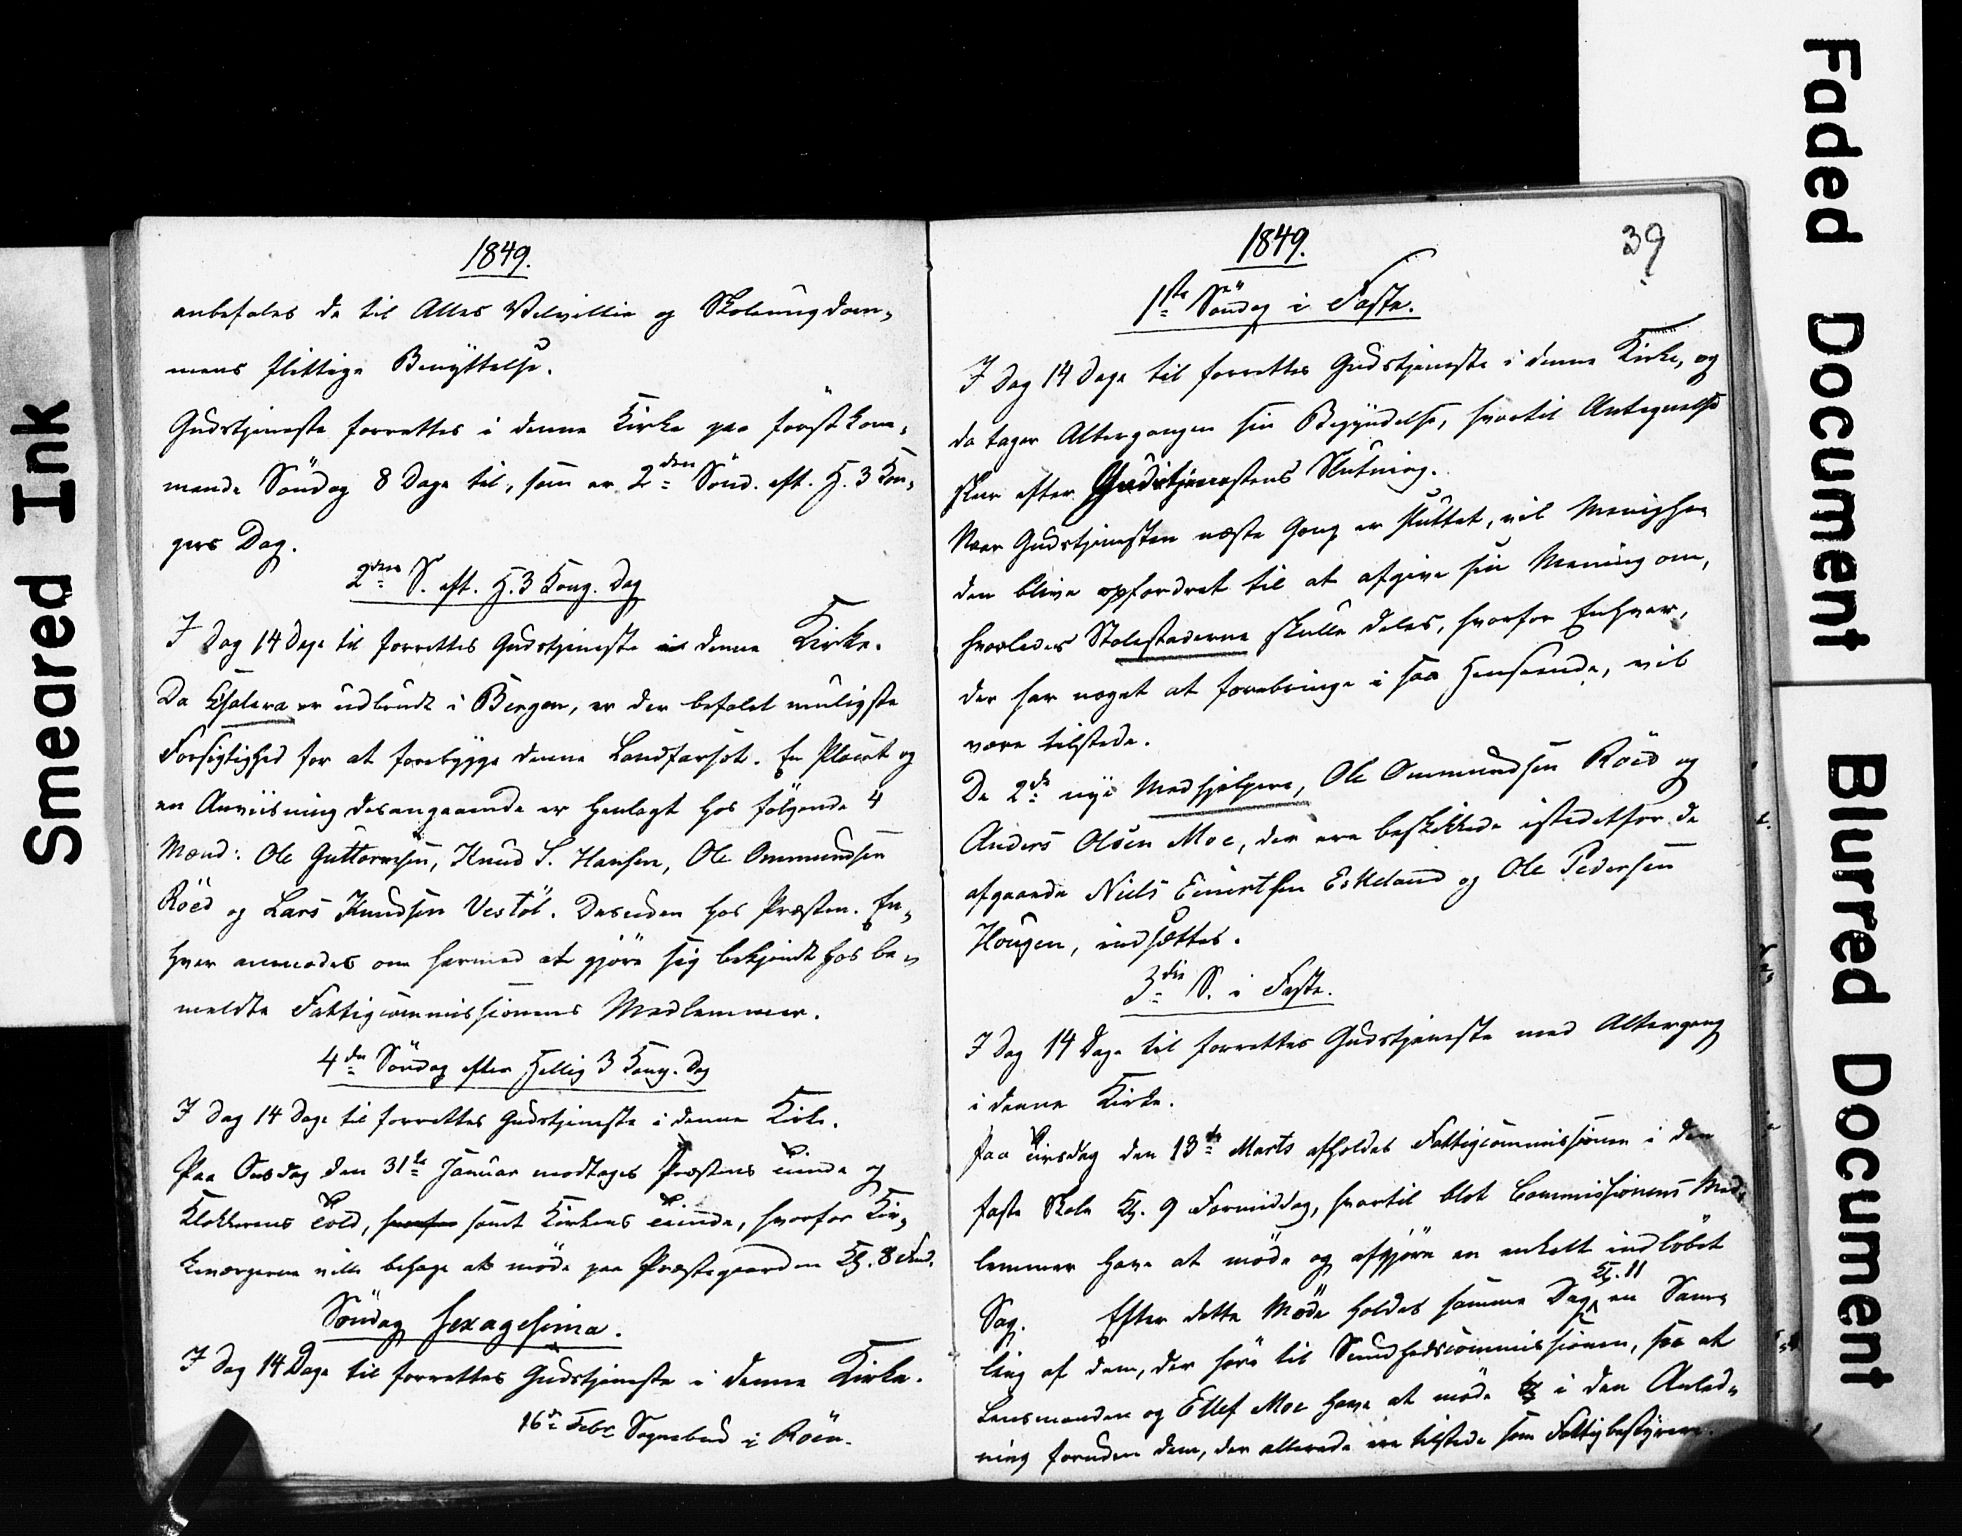 Smeared Ink
1849.
anbefales de til Alles Velvillie og Skoleungdom-
mens flittige Benyttelse.
Gudstjeneste forrettes i denne Kirke paa förstkom-
mende Söndag 8 Dage til, som er 2den Sönd. eft. H. 3 Kon-
gers Dag.
2den S. eft. H. 3 Kong. Dag
I Dag 14 Dage til forrettes Gudstjeneste i denne Kirke.
Da Cholera er udbrudt i Bergen, er der befalet muligste
Forsigtighed for at forebygge denne Landfarsot. En Placat og
en Anviisning desangaaende er henlagt hos fölgende 4
Mænd: Ole Guttormsen, Knud S. Hansen, Ole Ommundsen
Röed og Lars Knudsen Vestöl. Desuden hos Præsten. En-
hver anmodes om hermed at gjöre sig bekjendt hos be-
meldte Fattigcommissionens Medlemmer.
4de Söndag efter Hellig 3 Kong. Dag
I Dag 14 Dage til forrettes Gudstjeneste i denne Kirke.
Paa Onsdag den 31te Januar modtages Præstens Tiende og
Klokkerens Told, hvorfor samt Kirkens Tiende, hvorfor Kir-
keværgerne ville behage at möde paa Præstegaarden Kl. 8 Fmd.
Söndag Sexagesima.
I Dag 14 Dage til forrettes Gudstjeneste i denne Kirke.
16de Febr Sognebud i Röen.
1849.
39
1ste Söndag i Faste.
I Dag 14 Dage til forrettes Gudstjeneste i denne Kirke, og
da tager Altergangen sin Begyndelse, hvortil Antegnelse
skeer efter Gudstjenestens Slutning.
Naar Gudstjenesten næste Gang er sluttet, vil Menighe-
den blive opfordret til at afgive sin Mening om,
hvorledes Stolestaderne skulle deles, hvorfor Enhver,
der har noget at forebringe i saa Henseende, vil
være tilstede.
De 2de nye Medhjælpere, Ole Ommundsen Röed og
Anders Olsen Moe, der ere beskikkede istedetfor de
afgaaede Niels Einertsen Eskeland og Ole Pedersen
Hougen, indsættes.
3die S. i Faste.
I Dag 14 Dage til forrettes Gudstjeneste med Altergang
i denne Kirke.
Paa Tirsdag den 13de Marts afholdes Fattigcommissionen i den
faste Skole Kl. 9 Formiddag, hvortil blot Commissionens Med-
lemmer have at möde og afgjöre en enkelt indlöbet
Sag. Efter dette Möde holdes samme Dag Kl. 11 en Sam-
ling af dem, der höre til Sundhedscommissionen, saa at
Lensmanden og Ellef Moe have at möde i den Anled-
ning foruden dem, der allerede ere tilstede som Fattigbestyrere.
Faded Document
Blurred Document